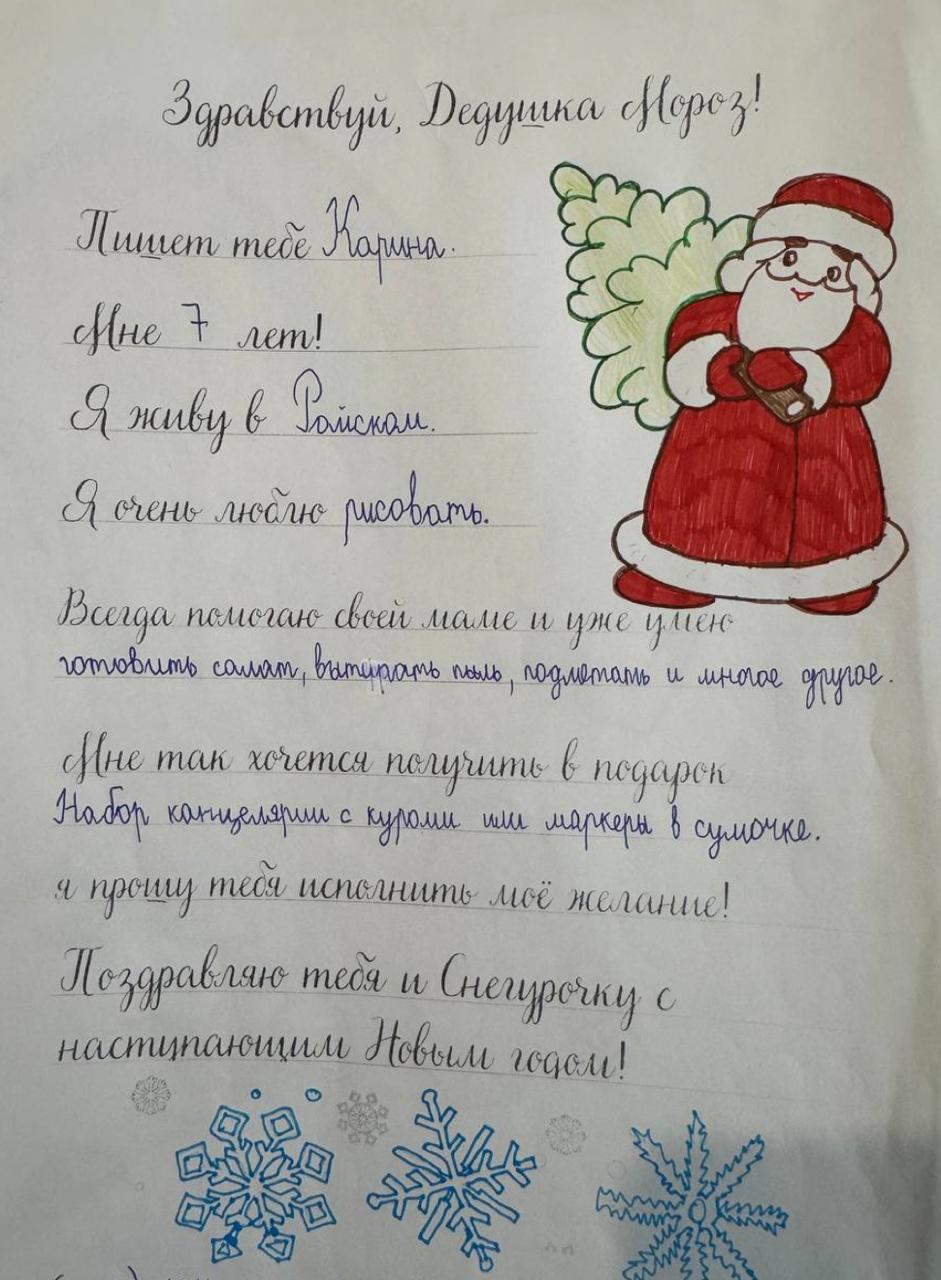 Здравствуй, Дедушка Мороз!
Пишет тебе Карина.
Мне 7 лет!
Я живу в Райском.
Я очень люблю рисовать.
Всегда помогаю своей маме и уже умею
готовить салат, вытирать пыль, подметать и многое другое.
Мне так хочется получить в подарок
Набор канцелярии с куроми или маркеры в сумочке.
я прошу тебя исполнить моё желание!
Поздравляю тебя и Снегурочку с
наступающим Новым годом!